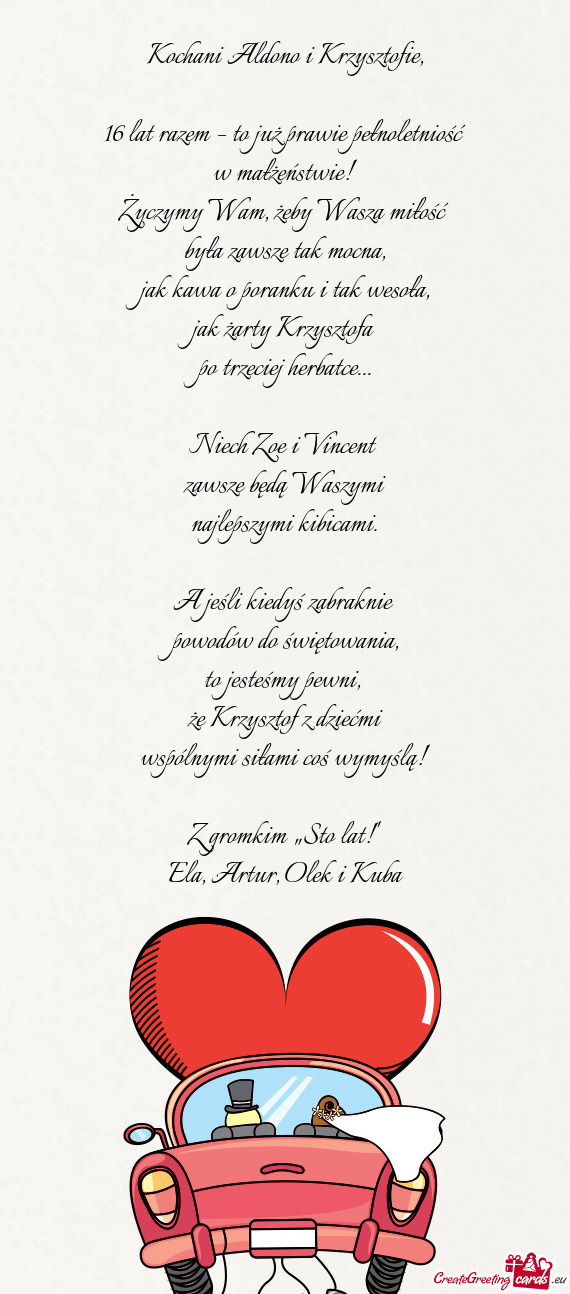 Kochani Aldono i Krzysztofie,
16 lat razem – to już prawie pełnoletniość
w małżeństwie!
Życzymy Wam, żeby Wasza miłość
była zawsze tak mocna,
jak kawa o poranku i tak wesoła,
jak żarty Krzysztofa
po trzeciej herbatce...
Niech Zoe i Vincent
zawsze będą Waszymi
najlepszymi kibicami.
A jeśli kiedyś zabraknie
powodów do świętowania,
to jesteśmy pewni,
że Krzysztof z dziećmi
wspólnymi siłami coś wymyślą!
Z gromkim „Sto lat!"
Ela, Artur, Olek i Kuba
CreateGreetingcards.eu